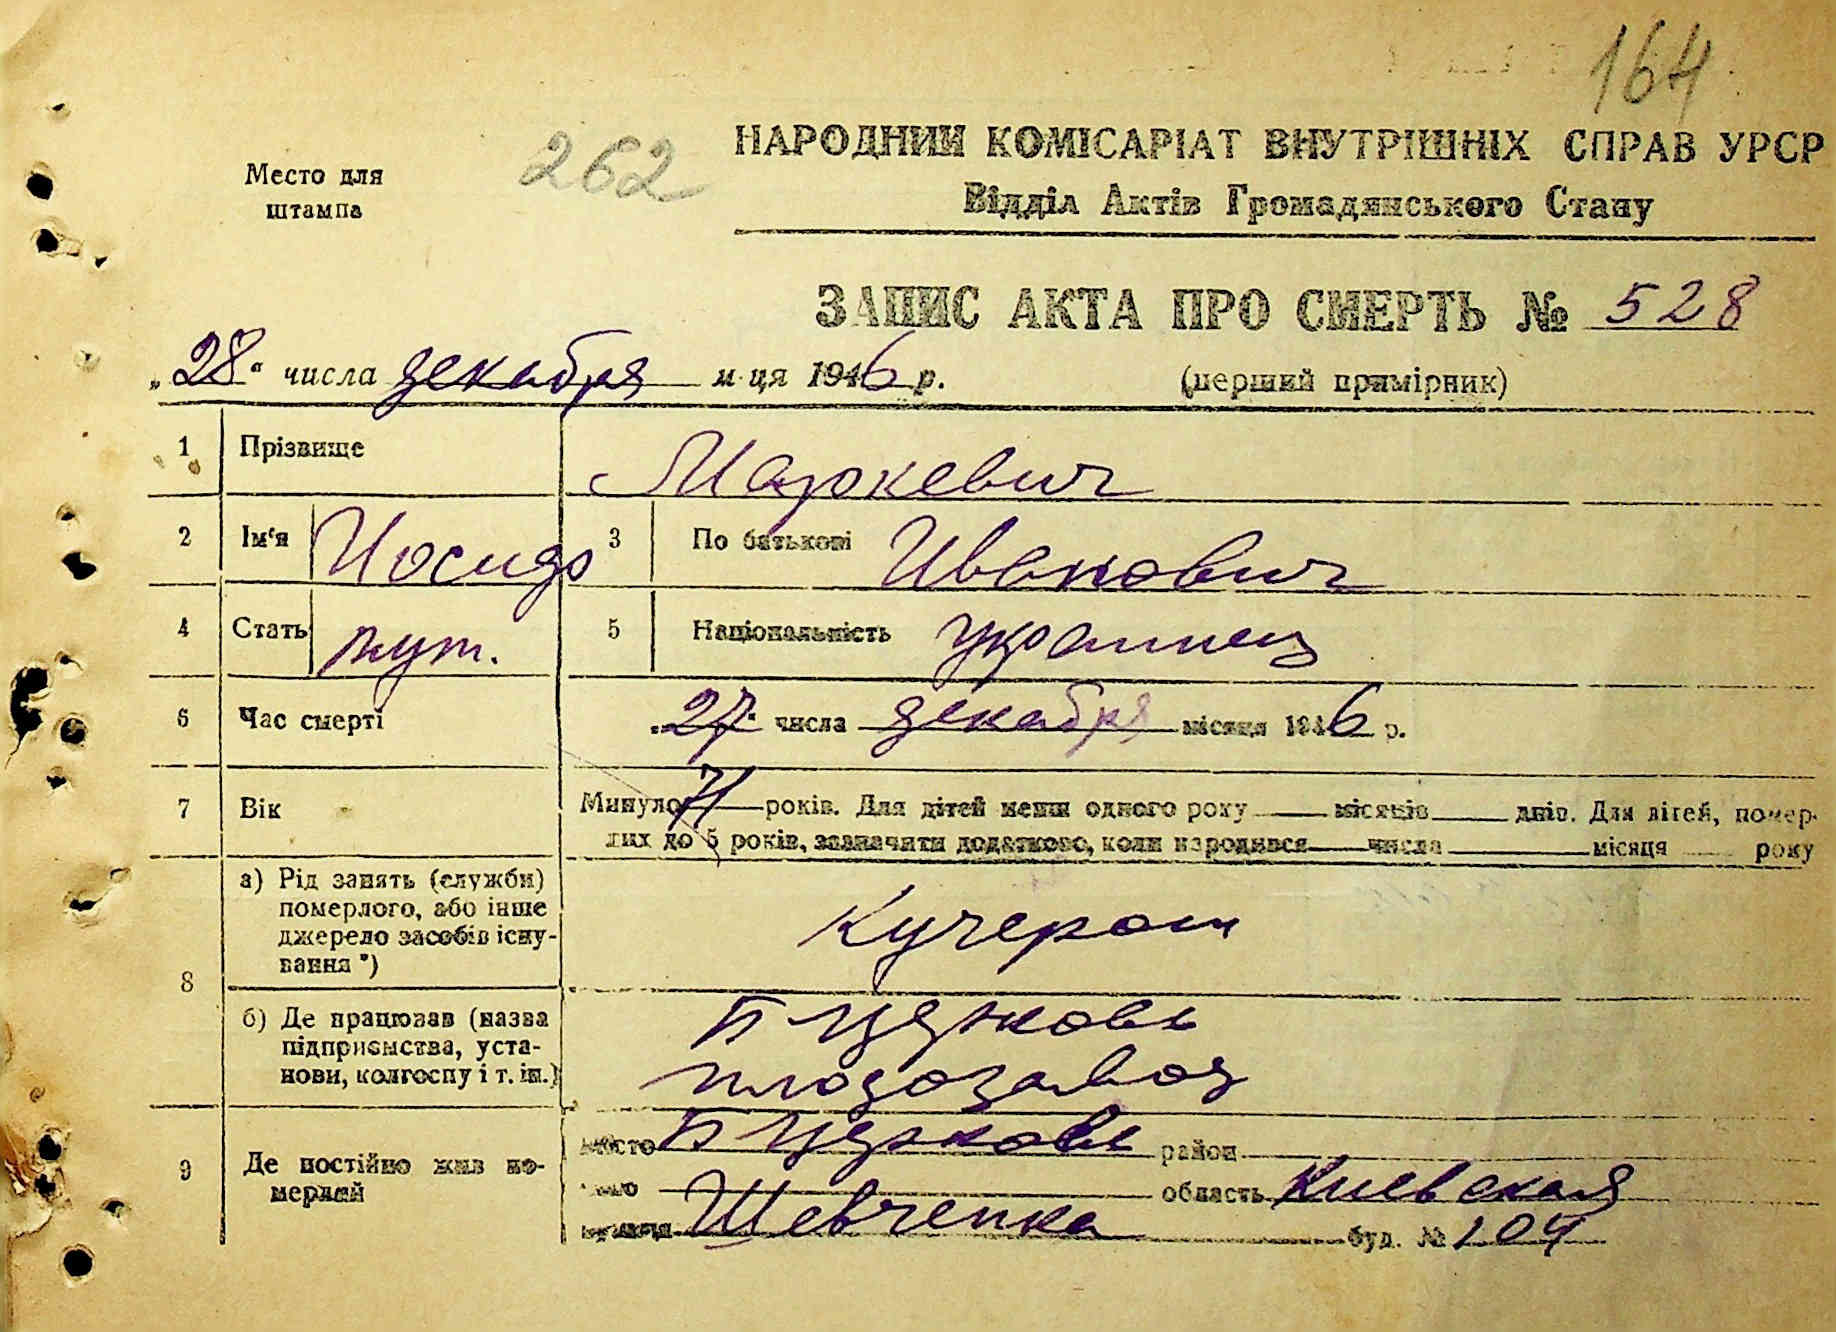 164
262
Место для
штампа
НАРОДНИЙ КОМІСАРІАТ ВНУТРІШНІХ СПРАВ УРСР
Відділ Актів Громадянського Стану
ЗАПИС АКТА ПРО СМЕРТЬ № 528
„28“ числа декабря м-ця 1946 р. (перший примірник)
1 Прізвище Маркевич
2 Ім'я Иосиф 3 По батькові Иванович
4 Стать муж. 5 Національність украинец
6 Час смерті „27“ числа декабря місяця 1946 р.
7 Вік Минуло 71 років. Для дітей менш одного року місяців днів. Для дітей, помер-
лих до 5 років, зазначити додатково, коли народився числа місяця року
8 а) Рід занять (служби)
померлого, або інше
джерело засобів існу-
вання *)
Кучером
б) Де працював (назва
підприємства, уста-
нови, колгоспу і т. ін.)
Б Церковь
плодозавод
9 Де постійно жив по-
мерлий
місто Б Церковь район
село область Киевская
вулиця Шевченка буд. № 104